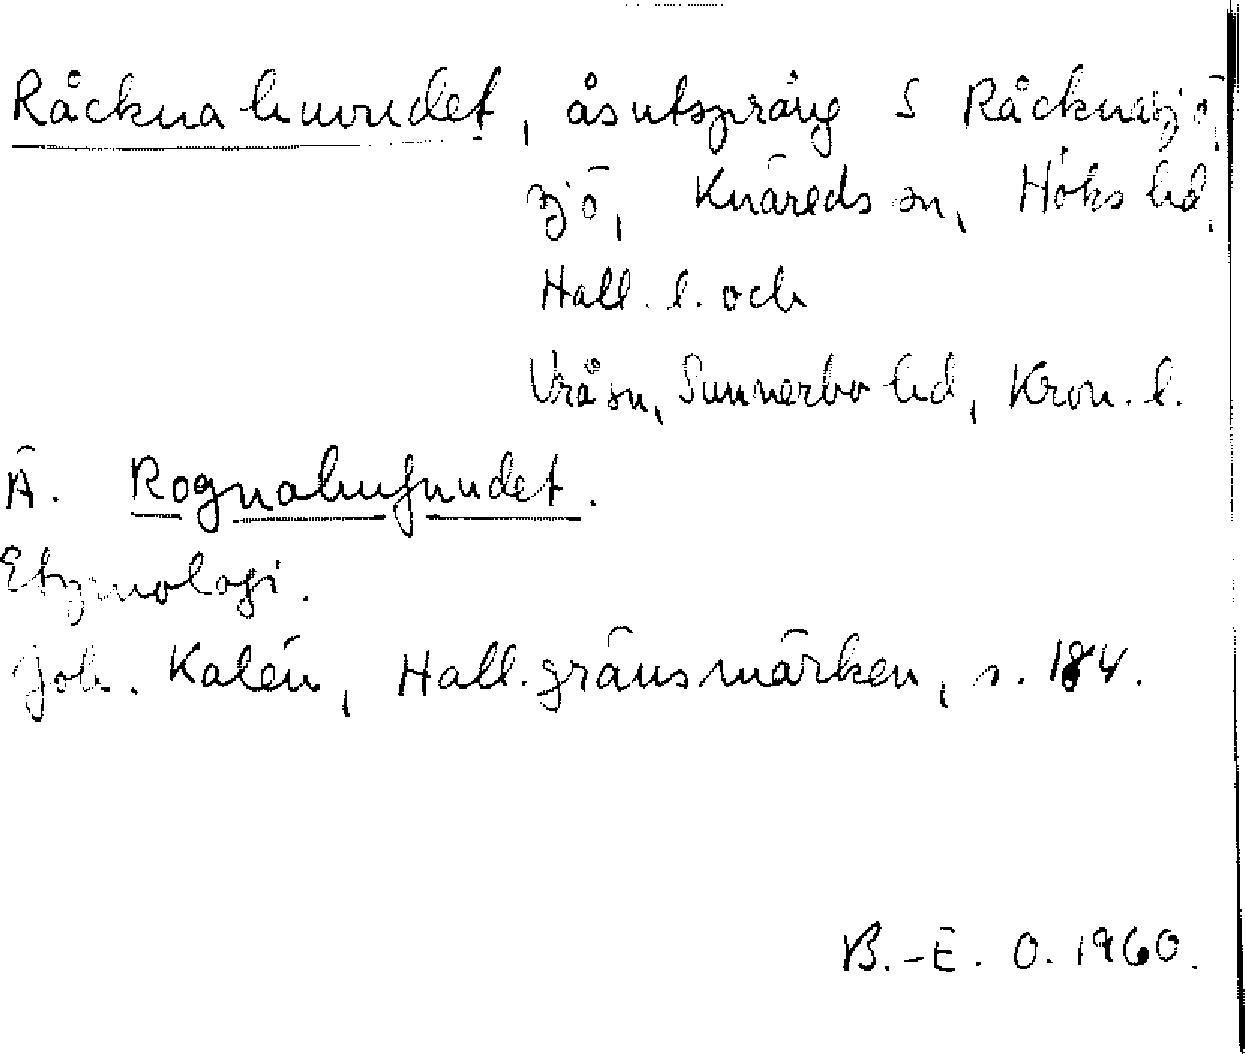 Råckna huvudet, åsutspräng S Råcknasjö,
sjö, Knäreds sn, Höks hd,
Hall. l. och
Vrå sn, Sunnerbo hd, Kron. l.
Ä. Rognahufuudet.
Etymologi.
Joh. Kalén, Hall. gränsmärken, s. 184.
B.-E. O. 1960.